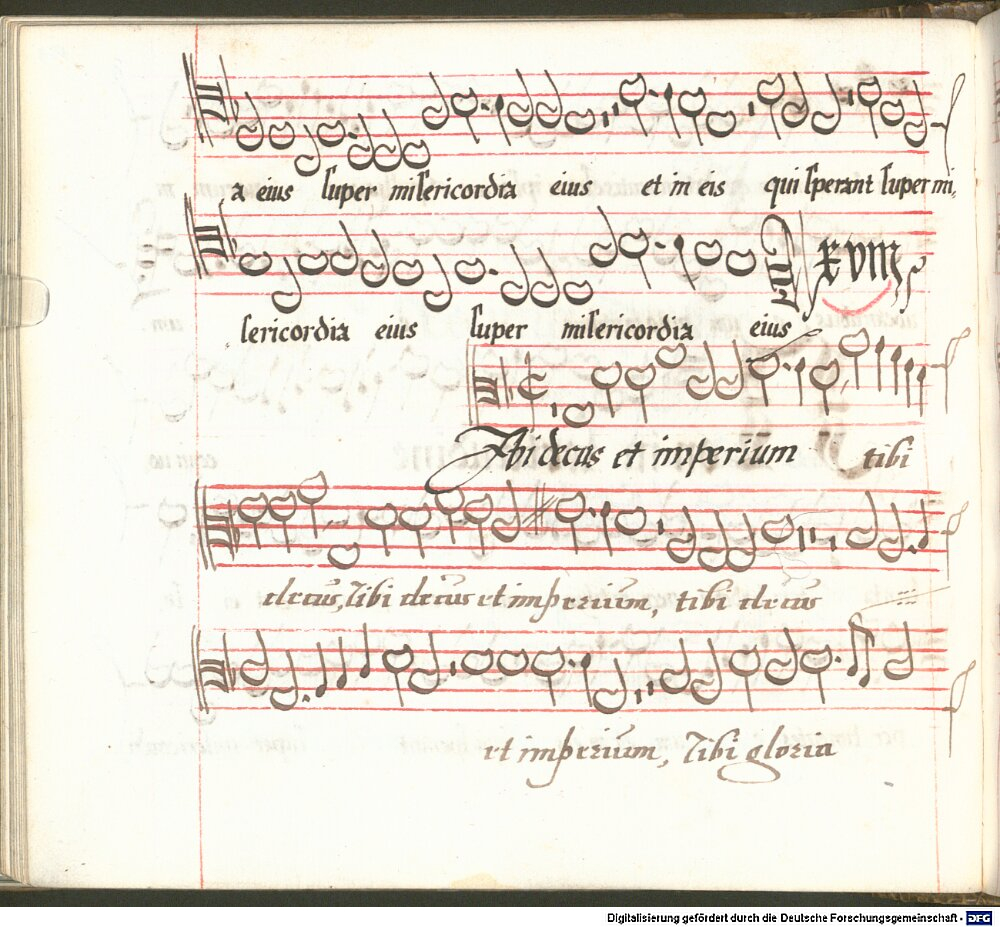 a eius super misericordia eius et in eis qui sperant super mi,
XVIII
sericordia eius super misericordia eius
Tibi decus et imperium tibi
decus, tibi decus et imperium, tibi decus
et imperium, tibi gloria
Digitalisierung gefördert durch die Deutsche Forschungsgemeinschaft - DFG